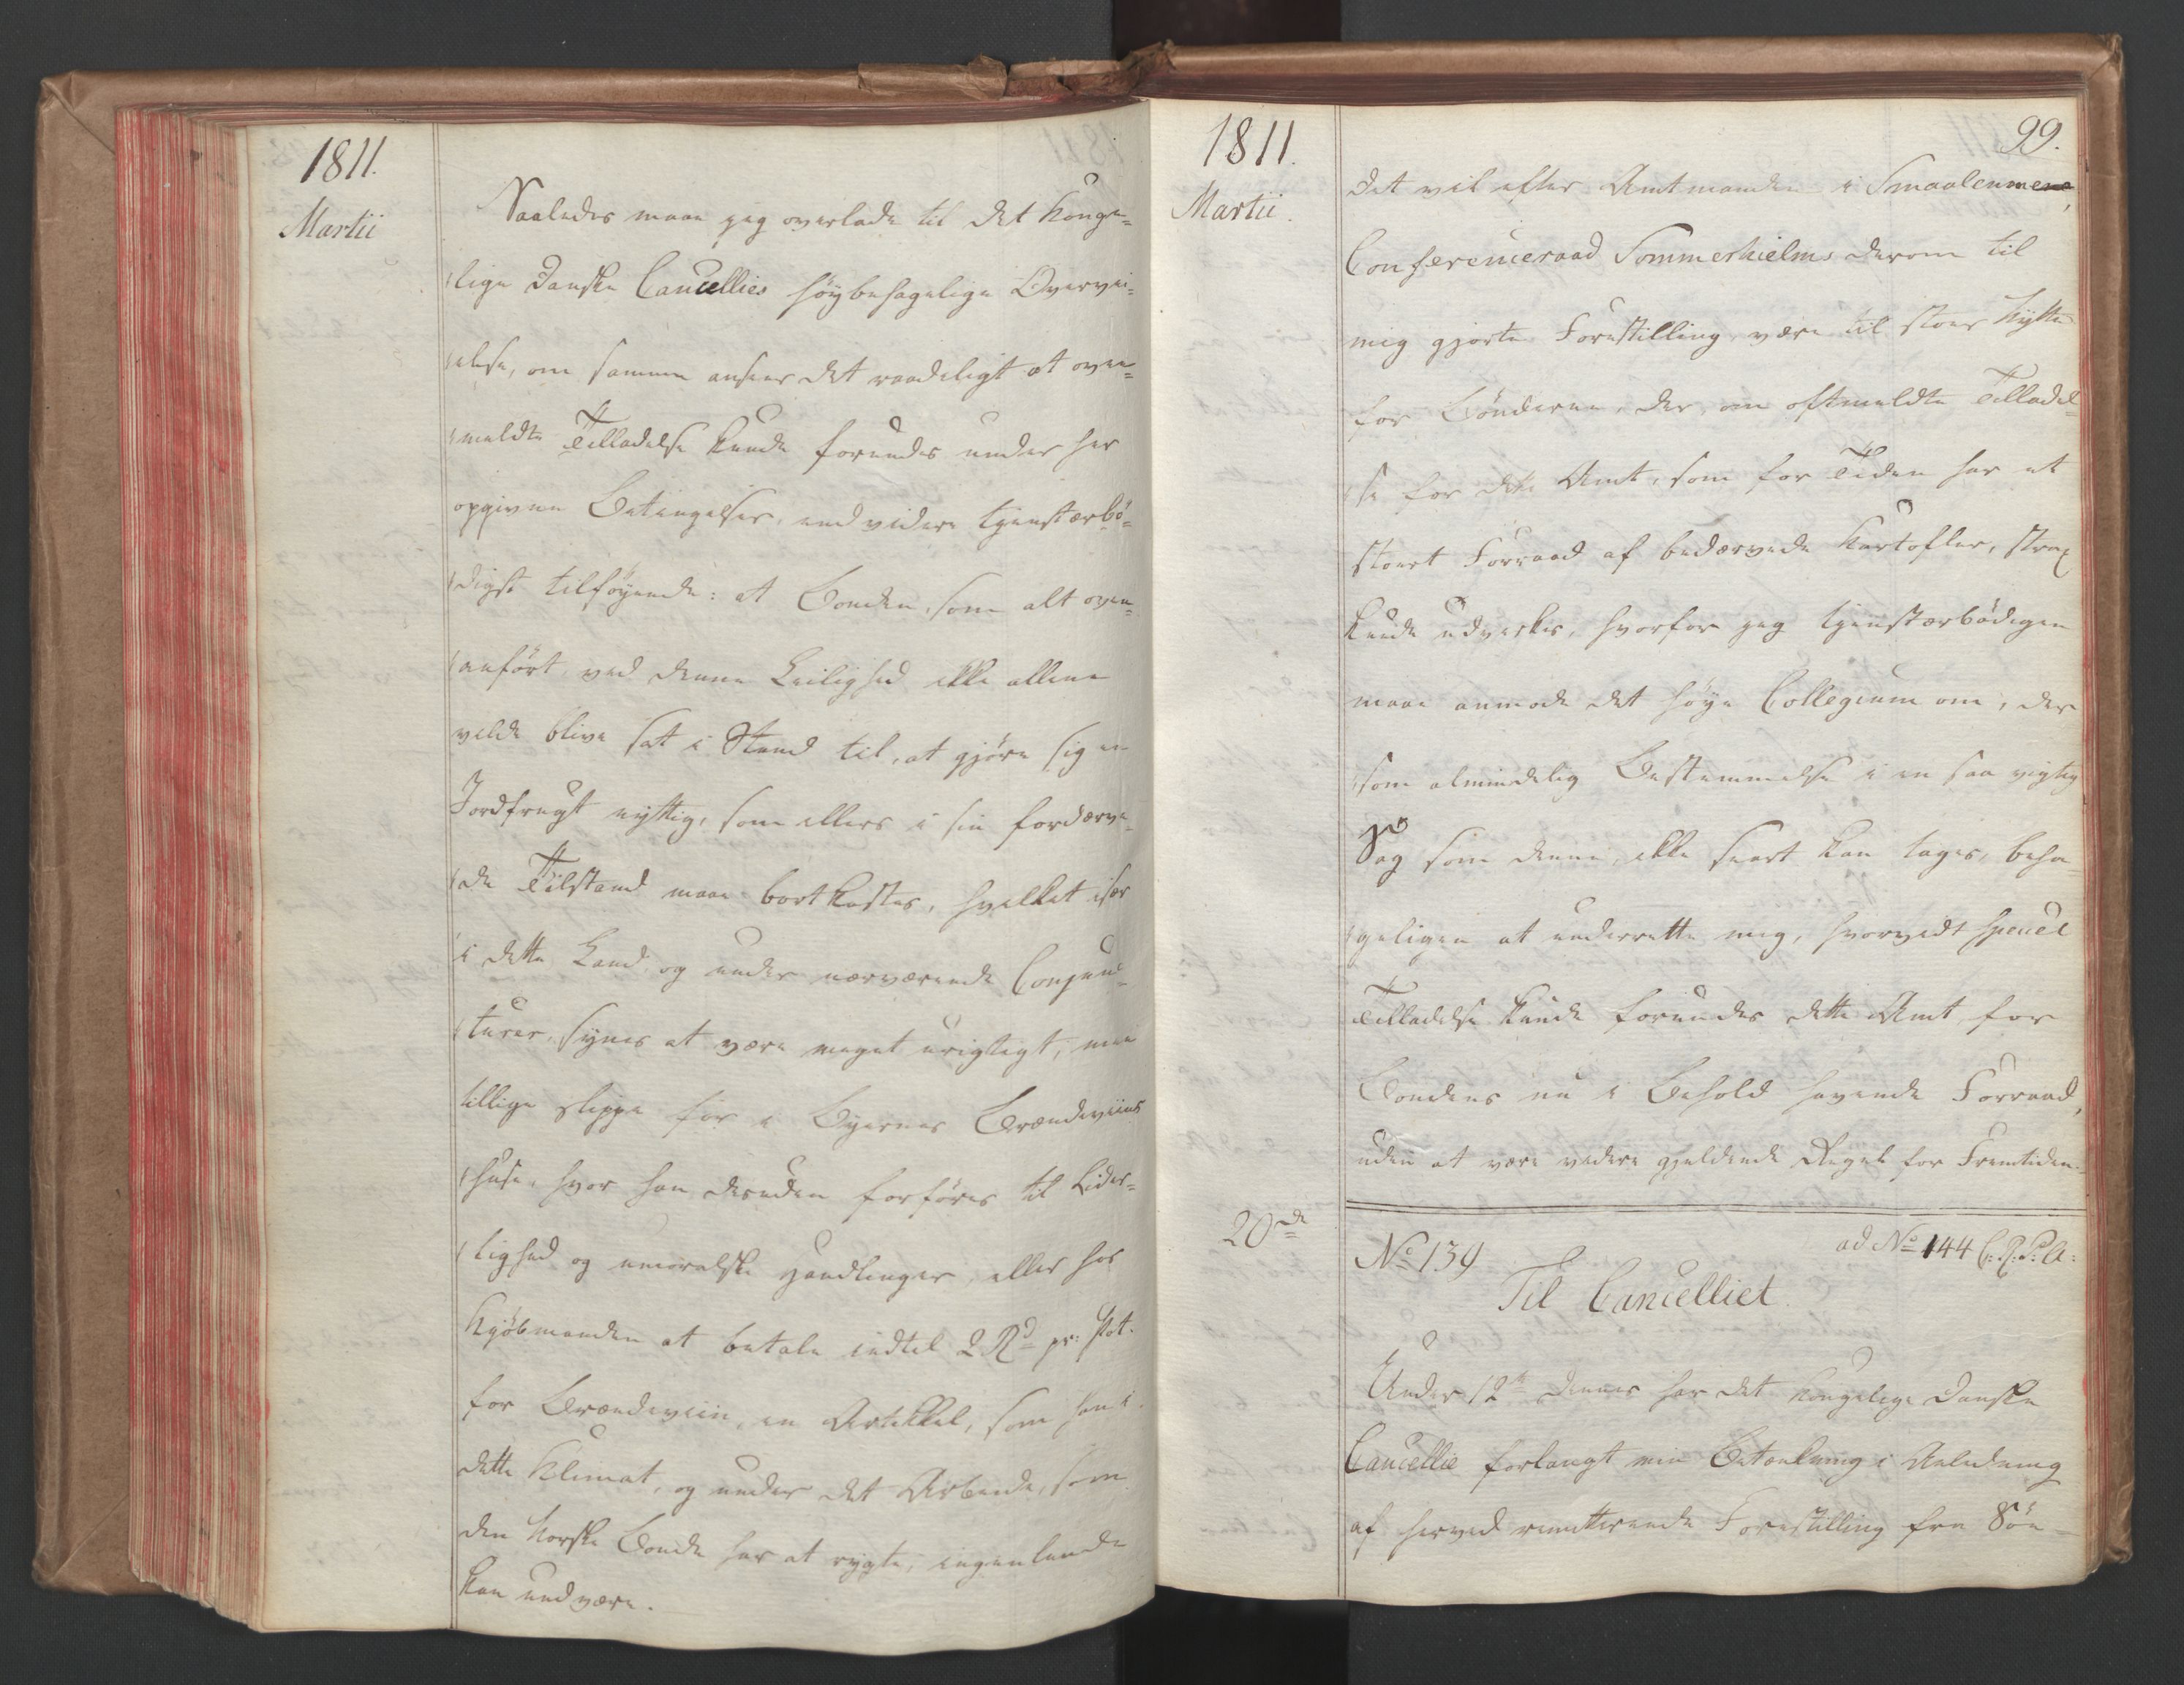 1811.
Martii
Saaledes maa jeg overlade til det Konge=
lige Danske Cancellies høybehagelige Overvei=
else, om samme ansees det raadeligt at oven=
meldte Tilladelse kunde forundes under her
opgivne Betingelser, end videre tjenstærbö=
digst tilföyende: at Bonden, som alt oven=
anfört, ved denne Leilighed ikke allene
vilde blive sat i Stand til, at gjöre sig en
Jordfrugt nyttig, som ellers i sin fordærve=
de Tilstand maae bortkastes, hvilket især
i dette Land og under nærværende Conjunc=
turer, synes at være meget urigtigt, men
tillige slippe for i Byernes Brændeviins
huse, hvor han desuden forföres til Lider=
lighed og umoralske Handlinger, eller hos
Kjøbmanden at betale indtil 2 Rd pr: Pot.
for Brændeviin, en Artikkel, som han i
dette Klimat, og under det Arbeide, som
den Norske Bonde har at rygte, ingenlunde
kan undvære.
1811.
Martii.
99.
Det vil efter Amtmanden i Smaalenmene,
Conferenceraad Sommerhielms derom til
mig gjorte Forestilling være til stoer Nytte
for Bönderne, der, om oftmeldte Tilladel=
se for dette Amt, som for Tiden har et
stoert Forraad af bedærvede Kartofler, strax
kunde udvirkes, hvorfor jeg tjenstærbödigen
maae anmode det høye Collegium om, der
som almindelig Bestemmelse i en saa vigtig
Sag som denne, ikke snart kan tages, beha=
geligen at underrette mig, hvorvidt speciel
Tilladelse kunde forundes dette Amt for
Bondens nu i Behold havende Forraad,
uden at være videre gjeldende Regel for Fremtiden.
20de
No 139
ad No 144 C: R: P: A:
Til Cancelliet.
Under 12te dennes har det Kongelige Danske
Cancellie forlangt min Betænkning i Anledning
af herved remitterende Forestilling fra Sön